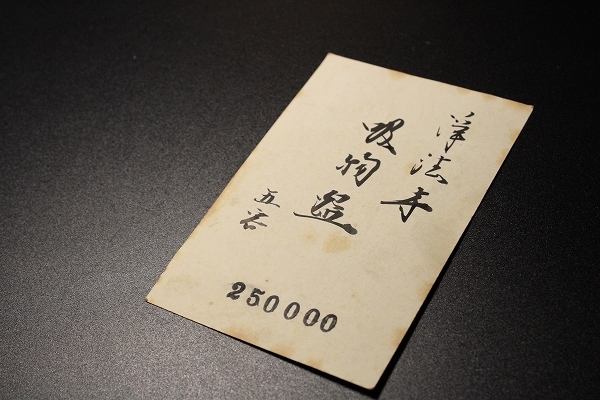 浄法寺
吸物盌
五客
250000